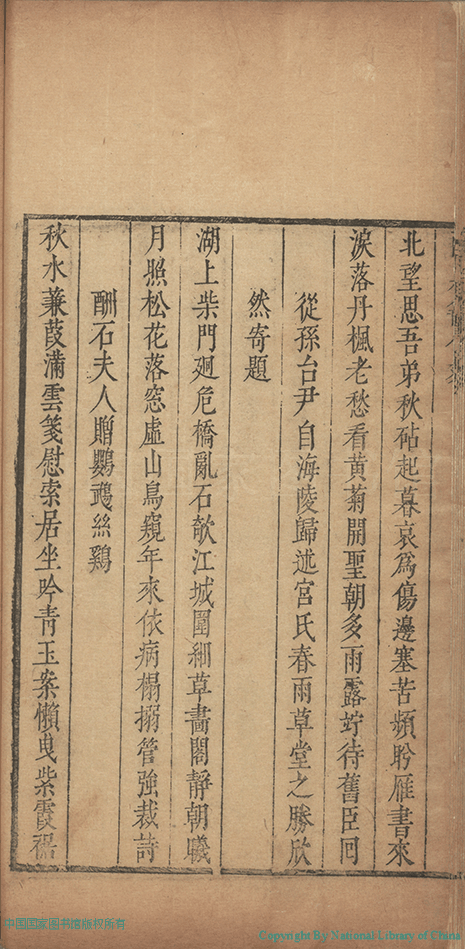 北望思吾弟秋砧起暮哀為傷邊塞苦頻盻雁書來
淚落丹楓老愁看黃菊開聖朝多雨露竚待舊臣回
從孫台尹自海陵歸述宮氏春雨草堂之勝欣
然寄題
湖上柴門迥危橋亂石欹江城圍細草畵閣靜朝曦
月照松花落窓虛山鳥窺年來依病榻搦管強裁詩
酬石夫人贈鸚鵡絲鷄
秋水蒹葭滿雲箋慰索居坐吟青玉案懶曳紫霞裾
中国国家图书馆版权所有
Copyright By National Library of China